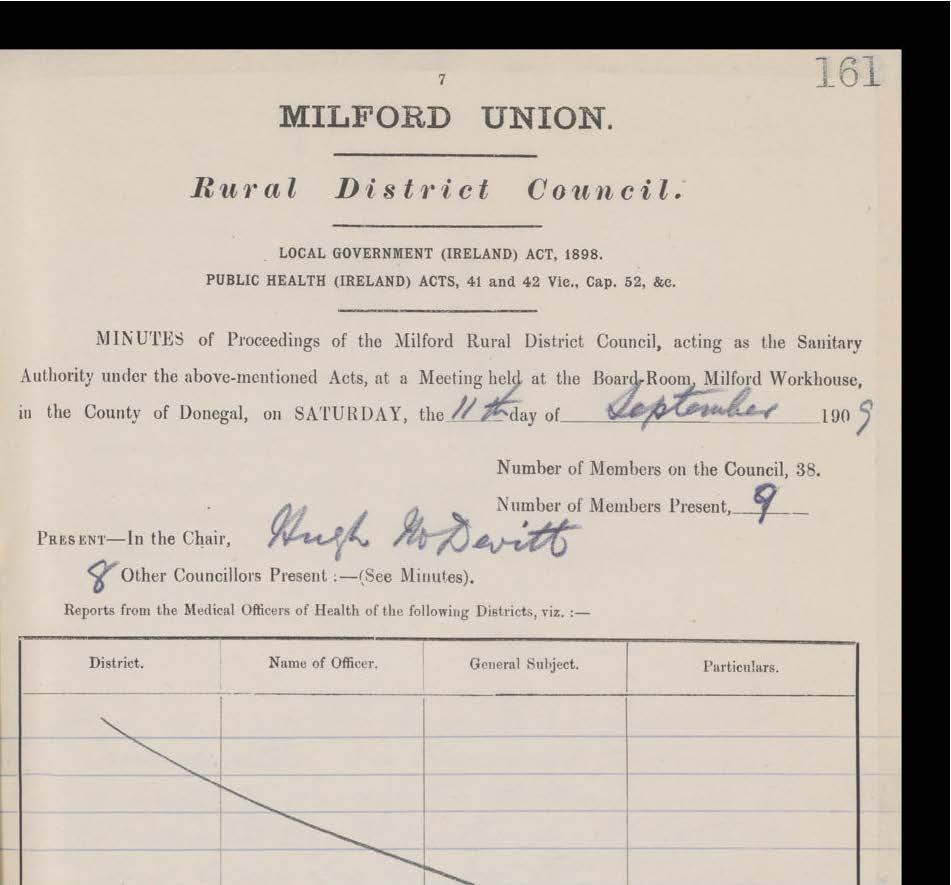 161
7
MILFORD UNION.
Rural District Council.
LOCAL GOVERNMENT (IRELAND) ACT, 1898.
PUBLIC HEALTH (IRELAND) ACTS, 41 and 42 Vic., Cap. 52, &c.
MINUTES of Proceedings of the Milford Rural District Council, acting as the Sanitary
Authority under the above-mentioned Acts, at a Meeting held at the Board-Room, Milford Workhouse,
in the County of Donegal, on SATURDAY, the 11th day of September 1909
Number of Members on the Council, 38.
Number of Members Present, 9
PRESENT—In the Chair, Hugh McDevitt
8 Other Councillors Present :—(See Minutes).
Reports from the Medical Officers of Health of the following Districts, viz. :—
District. Name of Officer. General Subject. Particulars.